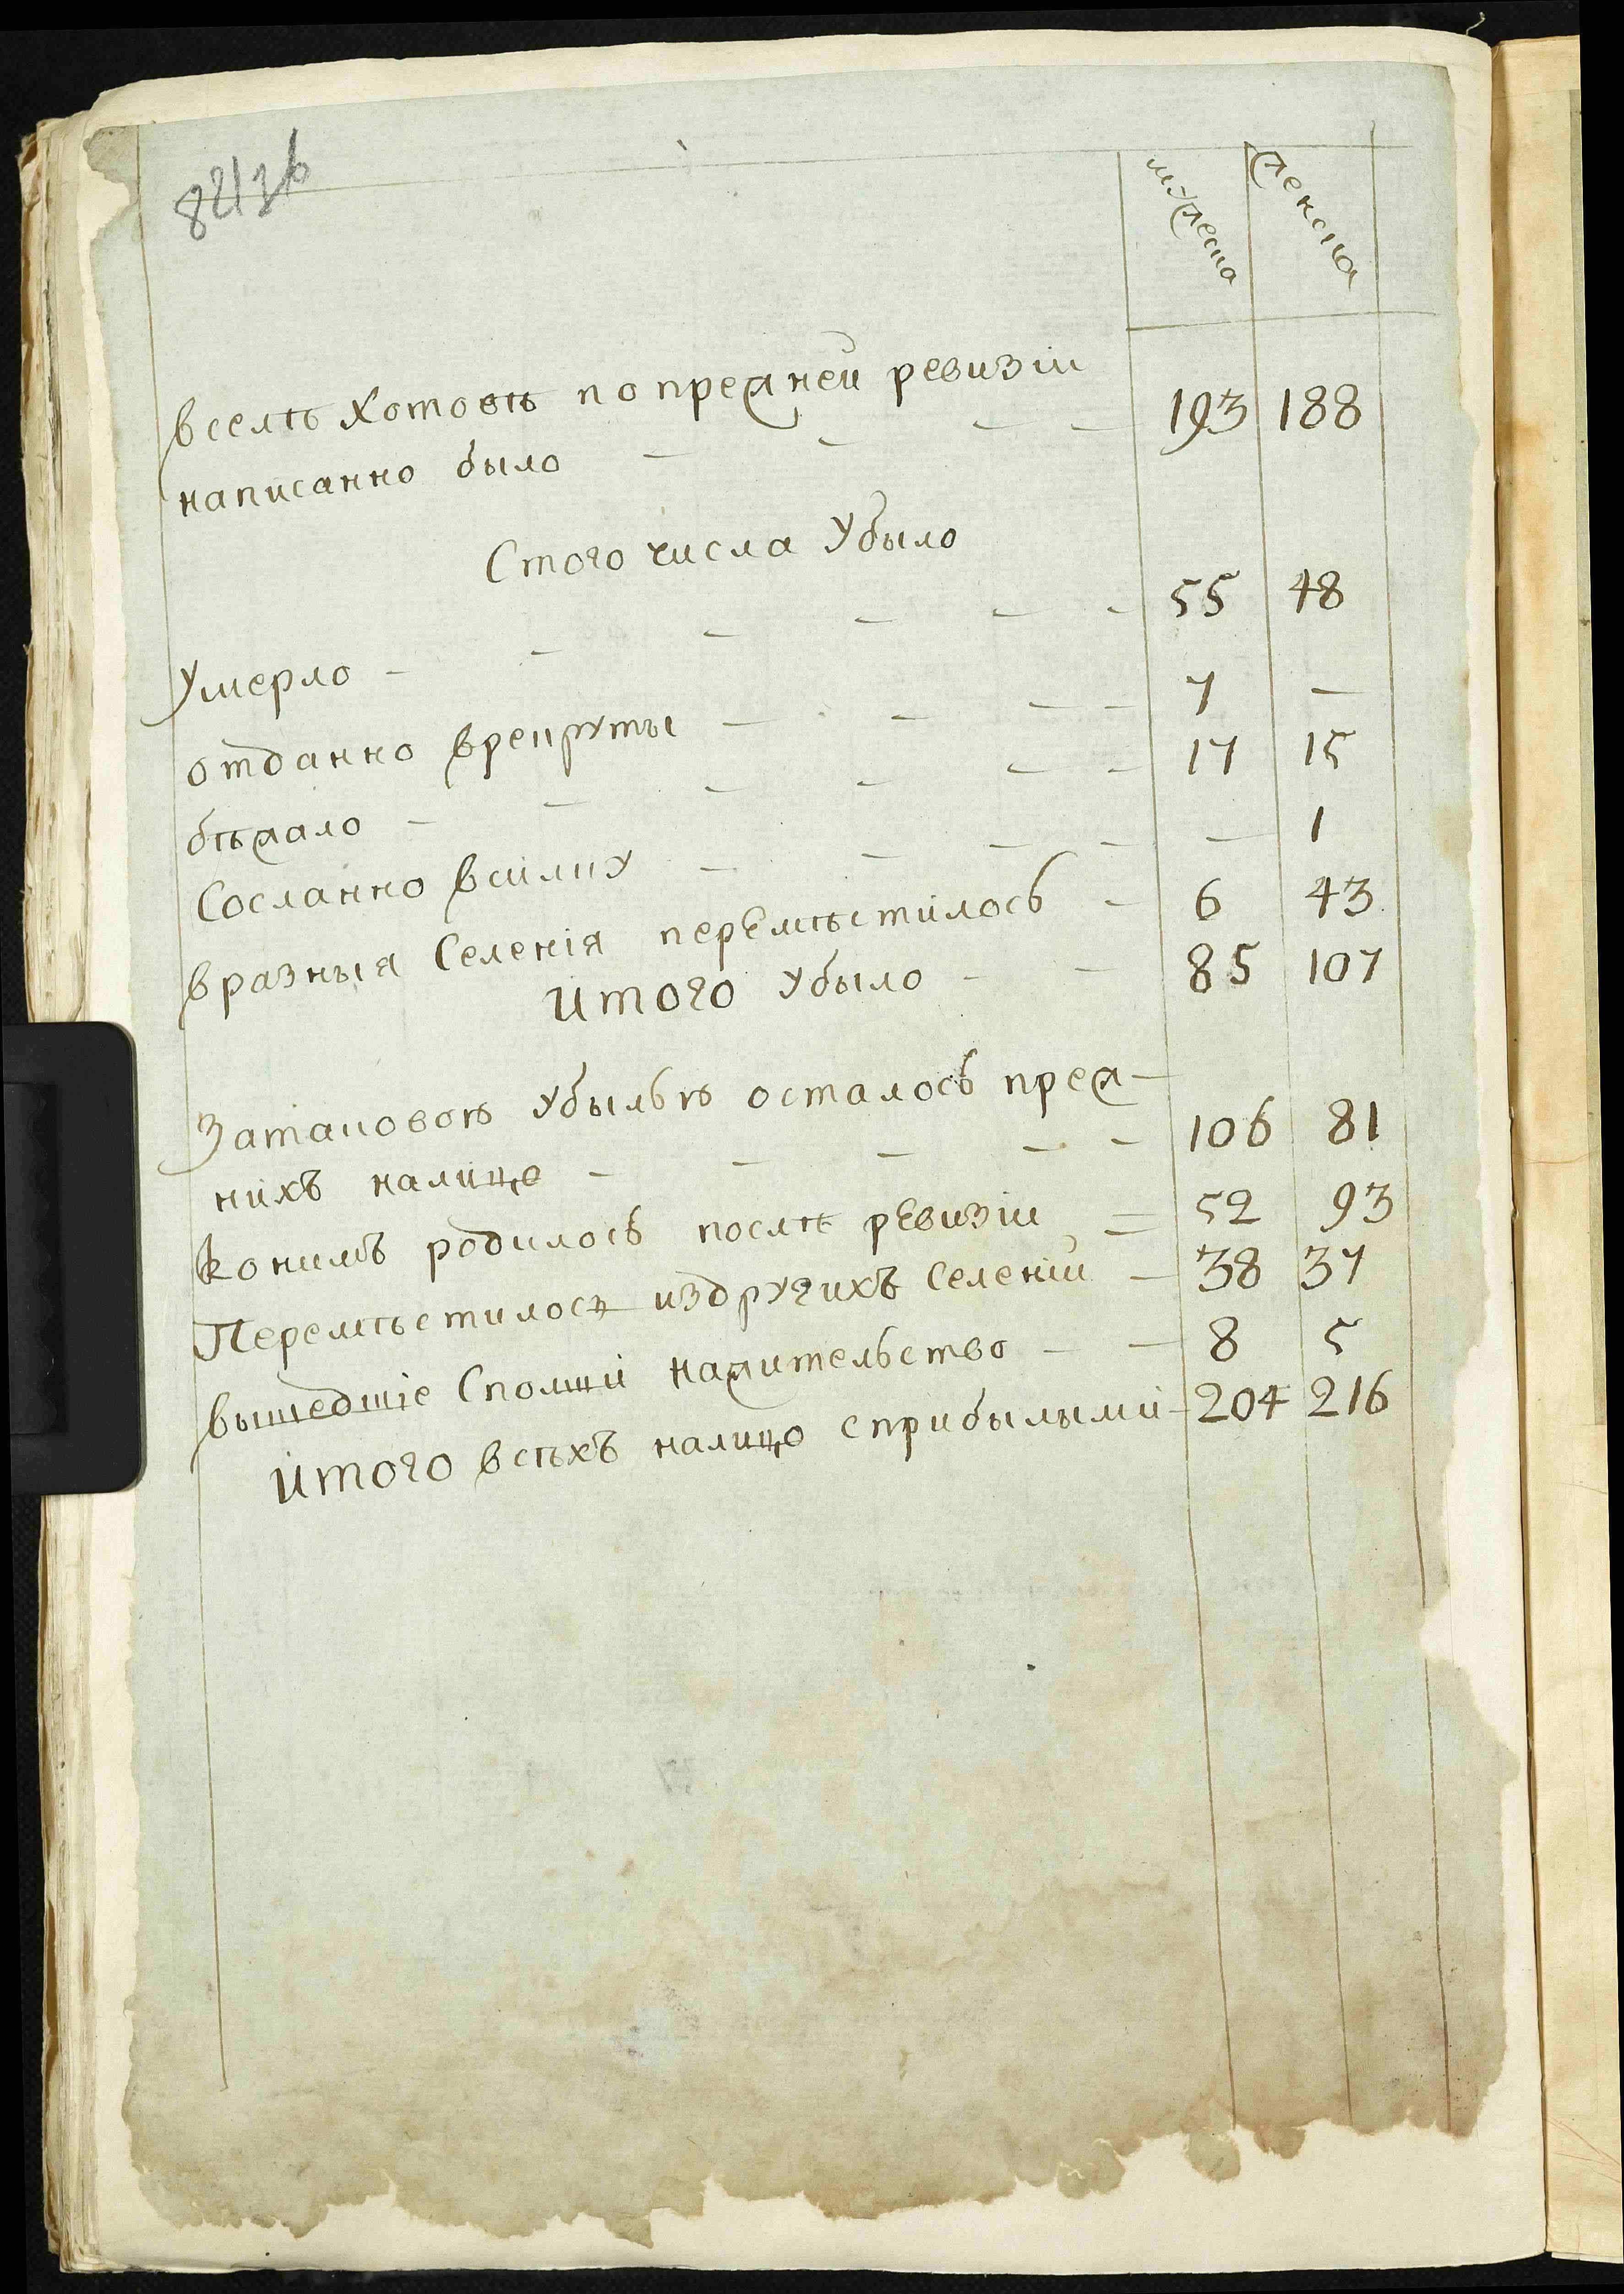 82/3б
мужеска женска
вселѣ Хотовѣ попрежнеи ревизіи
написанно было — — — — 193 188
Стого числа Убыло
Умерло — — — — — — 55 48
отданно врекруты — — — — 7 —
бѣжало — — — — — — 17 15
Сосланно всилку — — — — — 1
вразныя Селенія перемѣстилось — 6 43
итого убыло — — 85 107
Затаковою Убылью осталось преж—
нихъ налицо — — — — — 106 81
конимъ родилось послѣ ревизіи = 52 93
Перемѣстилось издругихъ Селеніи — 38 37
вышедшіе Сполши нажительство — — 8 5
итого всѣхъ налицо сприбылыми — 204 216